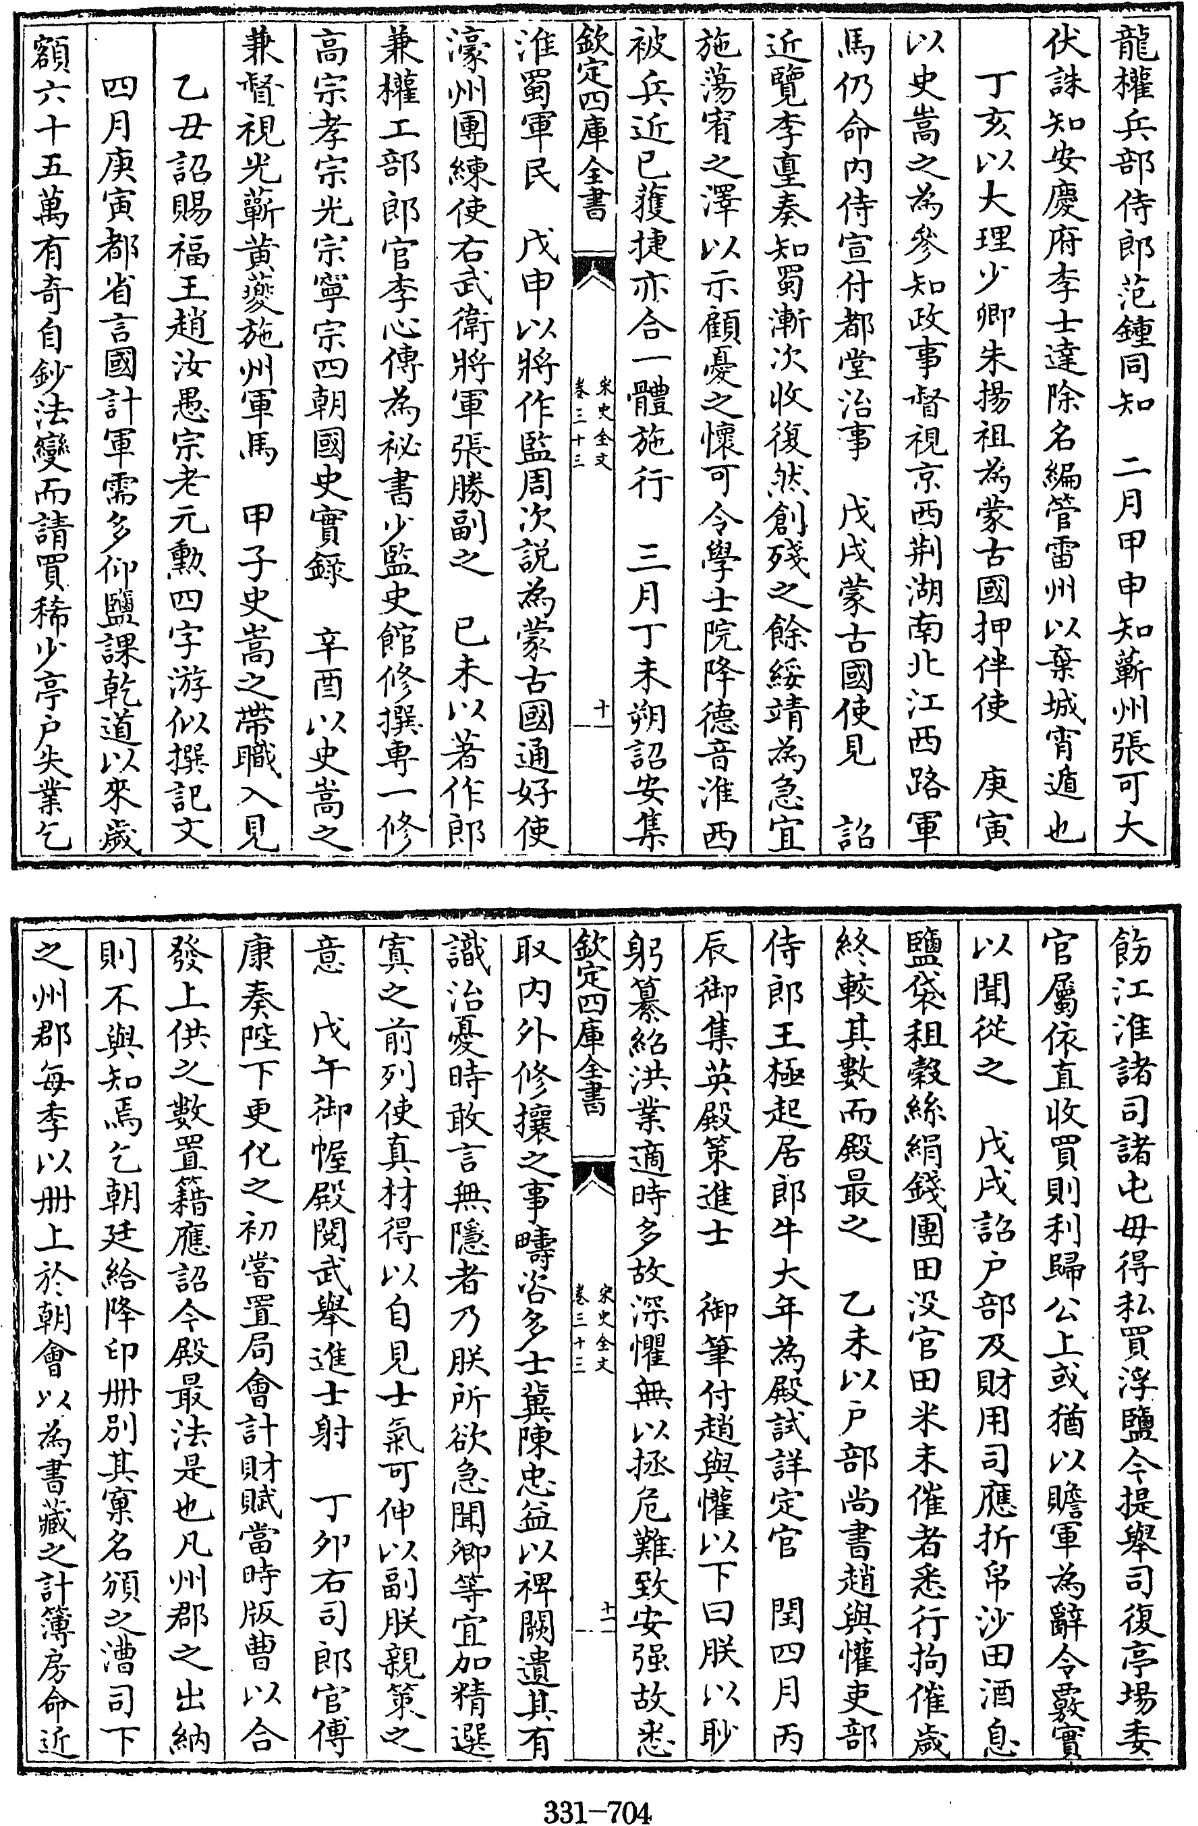 龍權兵部侍郎范鍾同知　二月甲申知蘄州張可大
伏誅知安慶府李士達除名編管雷州以棄城宵遁也
丁亥以大理少卿朱揚祖為蒙古國押伴使　庚寅
以史嵩之為參知政事督視京西荆湖南北江西路軍
馬仍命內侍宣付都堂治事　戊戌蒙古國使見　詔
近覽李㙜奏知蜀漸次收復然創殘之餘綏靖為急宜
施蕩宥之澤以示顧憂之懷可令學士院降德音淮西
被兵近已獲捷亦合一體施行　三月丁未朔詔安集
欽定四庫全書　宋史全文　卷三十三　十
淮蜀軍民　戊申以將作監周次說為蒙古國通好使
濠州團練使右武衛將軍張勝副之　已未以著作郎
兼權工部郎官李心傳為祕書少監史館修撰專一修
高宗孝宗光宗寧宗四朝國史實錄　辛酉以史嵩之
兼督視光蘄黃夔施州軍馬　甲子史嵩之帶職入見
乙丑詔賜福王趙汝愚宗老元勲四字游似撰記文
四月庚寅都省言國計軍需多仰鹽課乾道以來歲
額六十五萬有奇自鈔法變而請買稀少亭户失業乞
飭江淮諸司諸屯毋得私買浮鹽令提舉司復亭場委
官屬依直收買則利歸公上或猶以贍軍為辭令覈實
以聞從之　戊戌詔户部及財用司應折帛沙田酒息
鹽袋租穀絲絹錢團田没官田米未催者悉行拘催歲
終較其數而殿最之　乙未以户部尚書趙與懽吏部
侍郎王極起居郎牛大年為殿試詳定官　閏四月丙
辰御集英殿策進士　御筆付趙與懽以下曰朕以眇
躬纂紹洪業適時多故深懼無以拯危難致安强故悉
欽定四庫全書　宋史全文　卷三十三　十一
取內外修攘之事疇咨多士冀陳忠益以裨闕遺其有
識治憂時敢言無隱者乃朕所欲急聞卿等宜加精選
寘之前列使真材得以自見士氣可伸以副朕親策之
意　戊午御幄殿閱武舉進士射　丁卯右司郎官傅
康奏陛下更化之初嘗置局會計財賦當時版曹以合
發上供之數置籍應詔今殿最法是也凡州郡之出納
則不與知焉乞朝廷給降印冊別其窠名頒之漕司下
之州郡每季以冊上於朝會以為書藏之計簿房命近
331-704